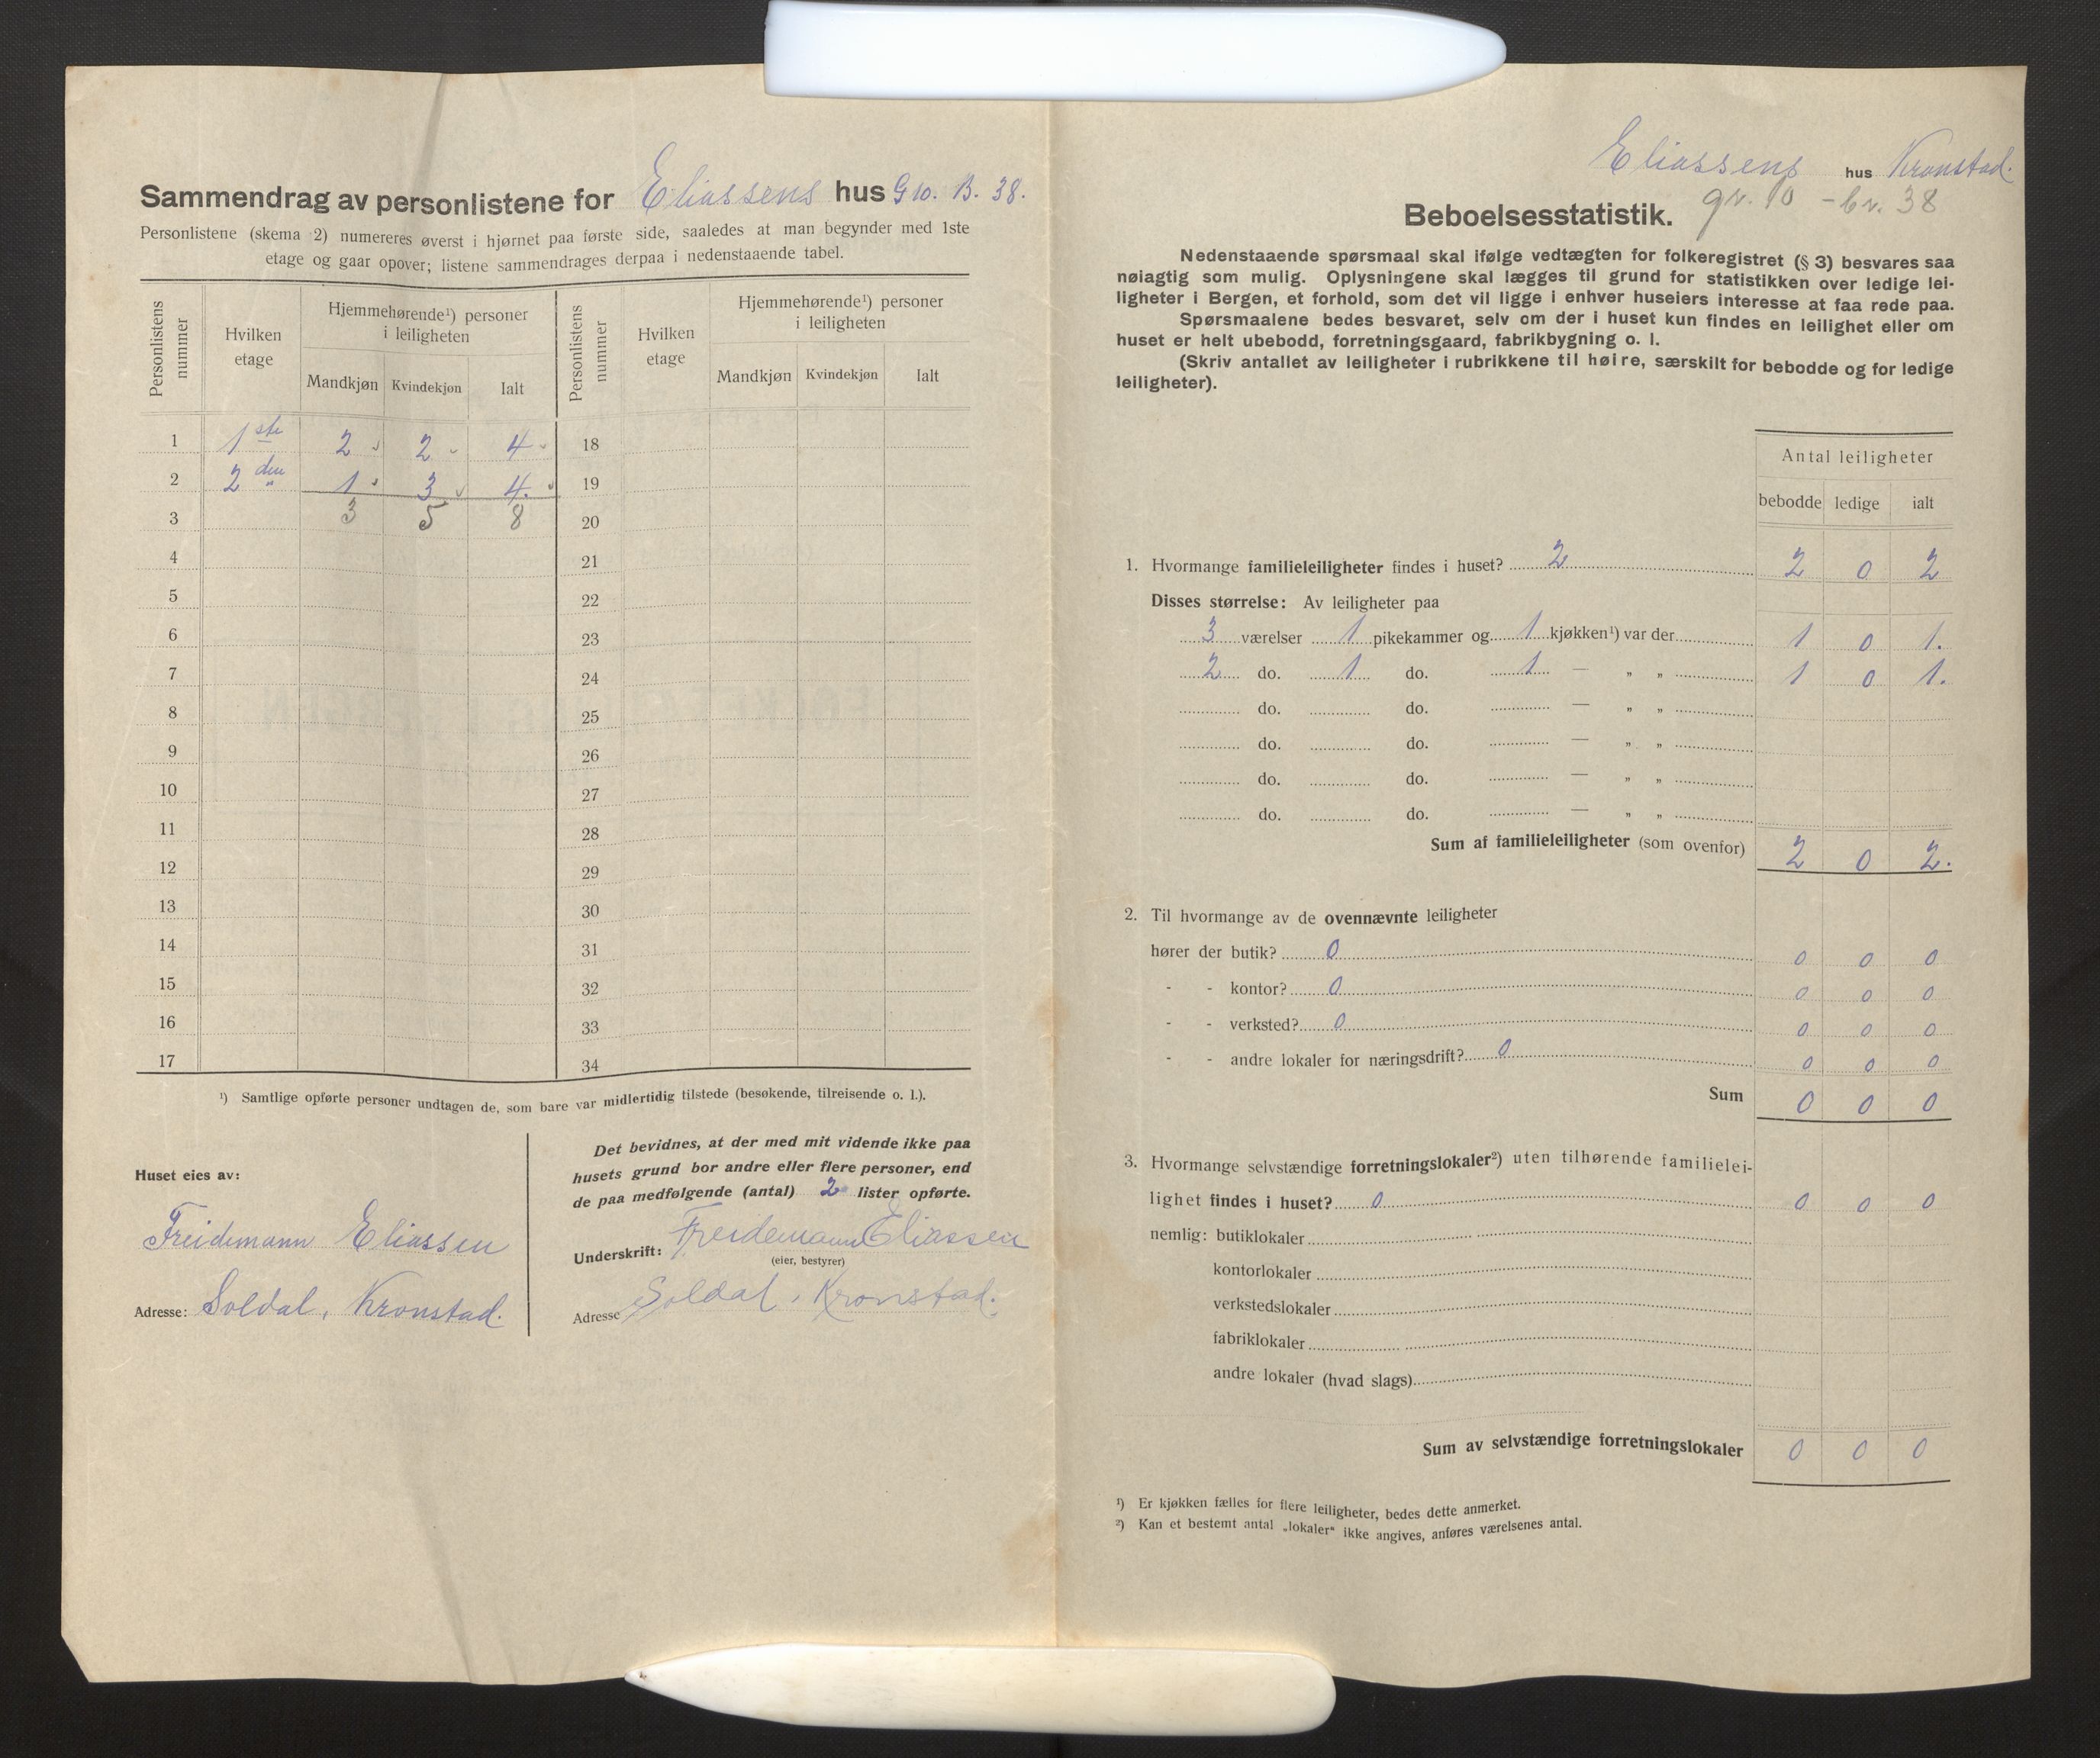 Sammendrag av personlistene for Eliassens hus G 10. B. 38.
Personlistene (skema 2) numereres øverst i hjørnet paa første side, saaledes at man begynder med 1ste
etage og gaar opover; listene sammendrages derpaa i nedenstaaende tabel.
Personlistens nummer
Hvilken etage
Hjemmehørende¹) personer i leiligheten
Mandkjøn Kvindekjøn Ialt
Personlistens nummer
Hvilken etage
Hjemmehørende¹) personer i leiligheten
Mandkjøn Kvindekjøn Ialt
1 1ste 2 2 4 18
2 2den 1 3 4. 19
3 3 5 8 20
4 21
5 22
6 23
7 24
8 25
9 26
10 27
11 28
12 29
13 30
14 31
15 32
16 33
17 34
¹) Samtlige opførte personer undtagen de, som bare var midlertidig tilstede (besøkende, tilreisende o. l.).
Huset eies av:
Freidemann Eliassen
Adresse: Soldal, Kronstad.
Det bevidnes, at der med mit vidende ikke paa
husets grund bor andre eller flere personer, end
de paa medfølgende (antal) 2 lister opførte.
Underskrift: Freidemann Eliassen
(eier, bestyrer)
Adresse Soldal, Kronstad.
Eliassens hus Kronstad.
gr. 10 - br. 38
Beboelsesstatistik.
Nedenstaaende spørsmaal skal ifølge vedtægten for folkeregistret (§ 3) besvares saa
nøiagtig som mulig. Oplysningene skal lægges til grund for statistikken over ledige lei-
ligheter i Bergen, et forhold, som det vil ligge i enhver huseiers interesse at faa rede paa.
Spørsmaalene bedes besvaret, selv om der i huset kun findes en leilighet eller om
huset er helt ubebodd, forretningsgaard, fabrikbygning o. l.
(Skriv antallet av leiligheter i rubrikkene til høire, særskilt for bebodde og for ledige
leiligheter).
Antal leiligheter
bebodde ledige ialt
1. Hvormange familieleiligheter findes i huset? 2 2 0 2
Disses størrelse: Av leiligheter paa
3 værelser 1 pikekammer og 1 kjøkken¹) var der 1 0 1.
2 do. 1 do. 1 — „ „ 1 0 1.
do. do. — „ „
do. do. — „ „
do. do. — „ „
do. do. — „ „
Sum af familieleiligheter (som ovenfor) 2 0 2.
2. Til hvormange av de ovennævnte leiligheter
hører der butik? 0 0 0 0
- - kontor? 0 0 0 0
- - verksted? 0 0 0 0
- - andre lokaler for næringsdrift? 0 0 0 0
Sum 0 0 0
3. Hvormange selvstændige forretningslokaler²) uten tilhørende familielei-
lighet findes i huset? 0 0 0 0
nemlig: butiklokaler
kontorlokaler
verkstedslokaler
fabriklokaler
andre lokaler (hvad slags)
Sum av selvstændige forretningslokaler 0 0 0
¹) Er kjøkken fælles for flere leiligheter, bedes dette anmerket.
²) Kan et bestemt antal „lokaler“ ikke angives, anføres værelsenes antal.